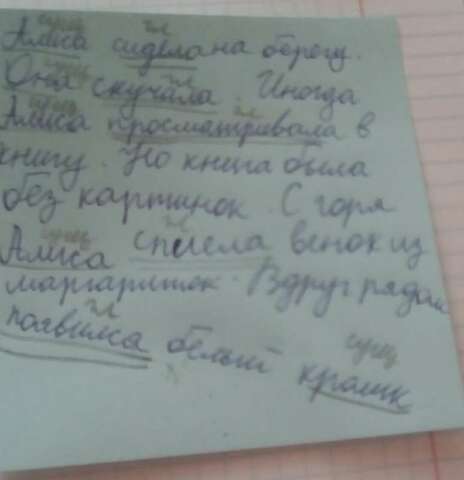 сущ гл
Алиса сидела на берегу.
сущ гл
Она скучала. Иногда
сущ гл
Алиса просматривала в
книгу. Но книга была
без картинок. С горя
сущ гл
Алиса сплела венок из
маргариток. Вдруг рядом
гл сущ
появился белый кролик